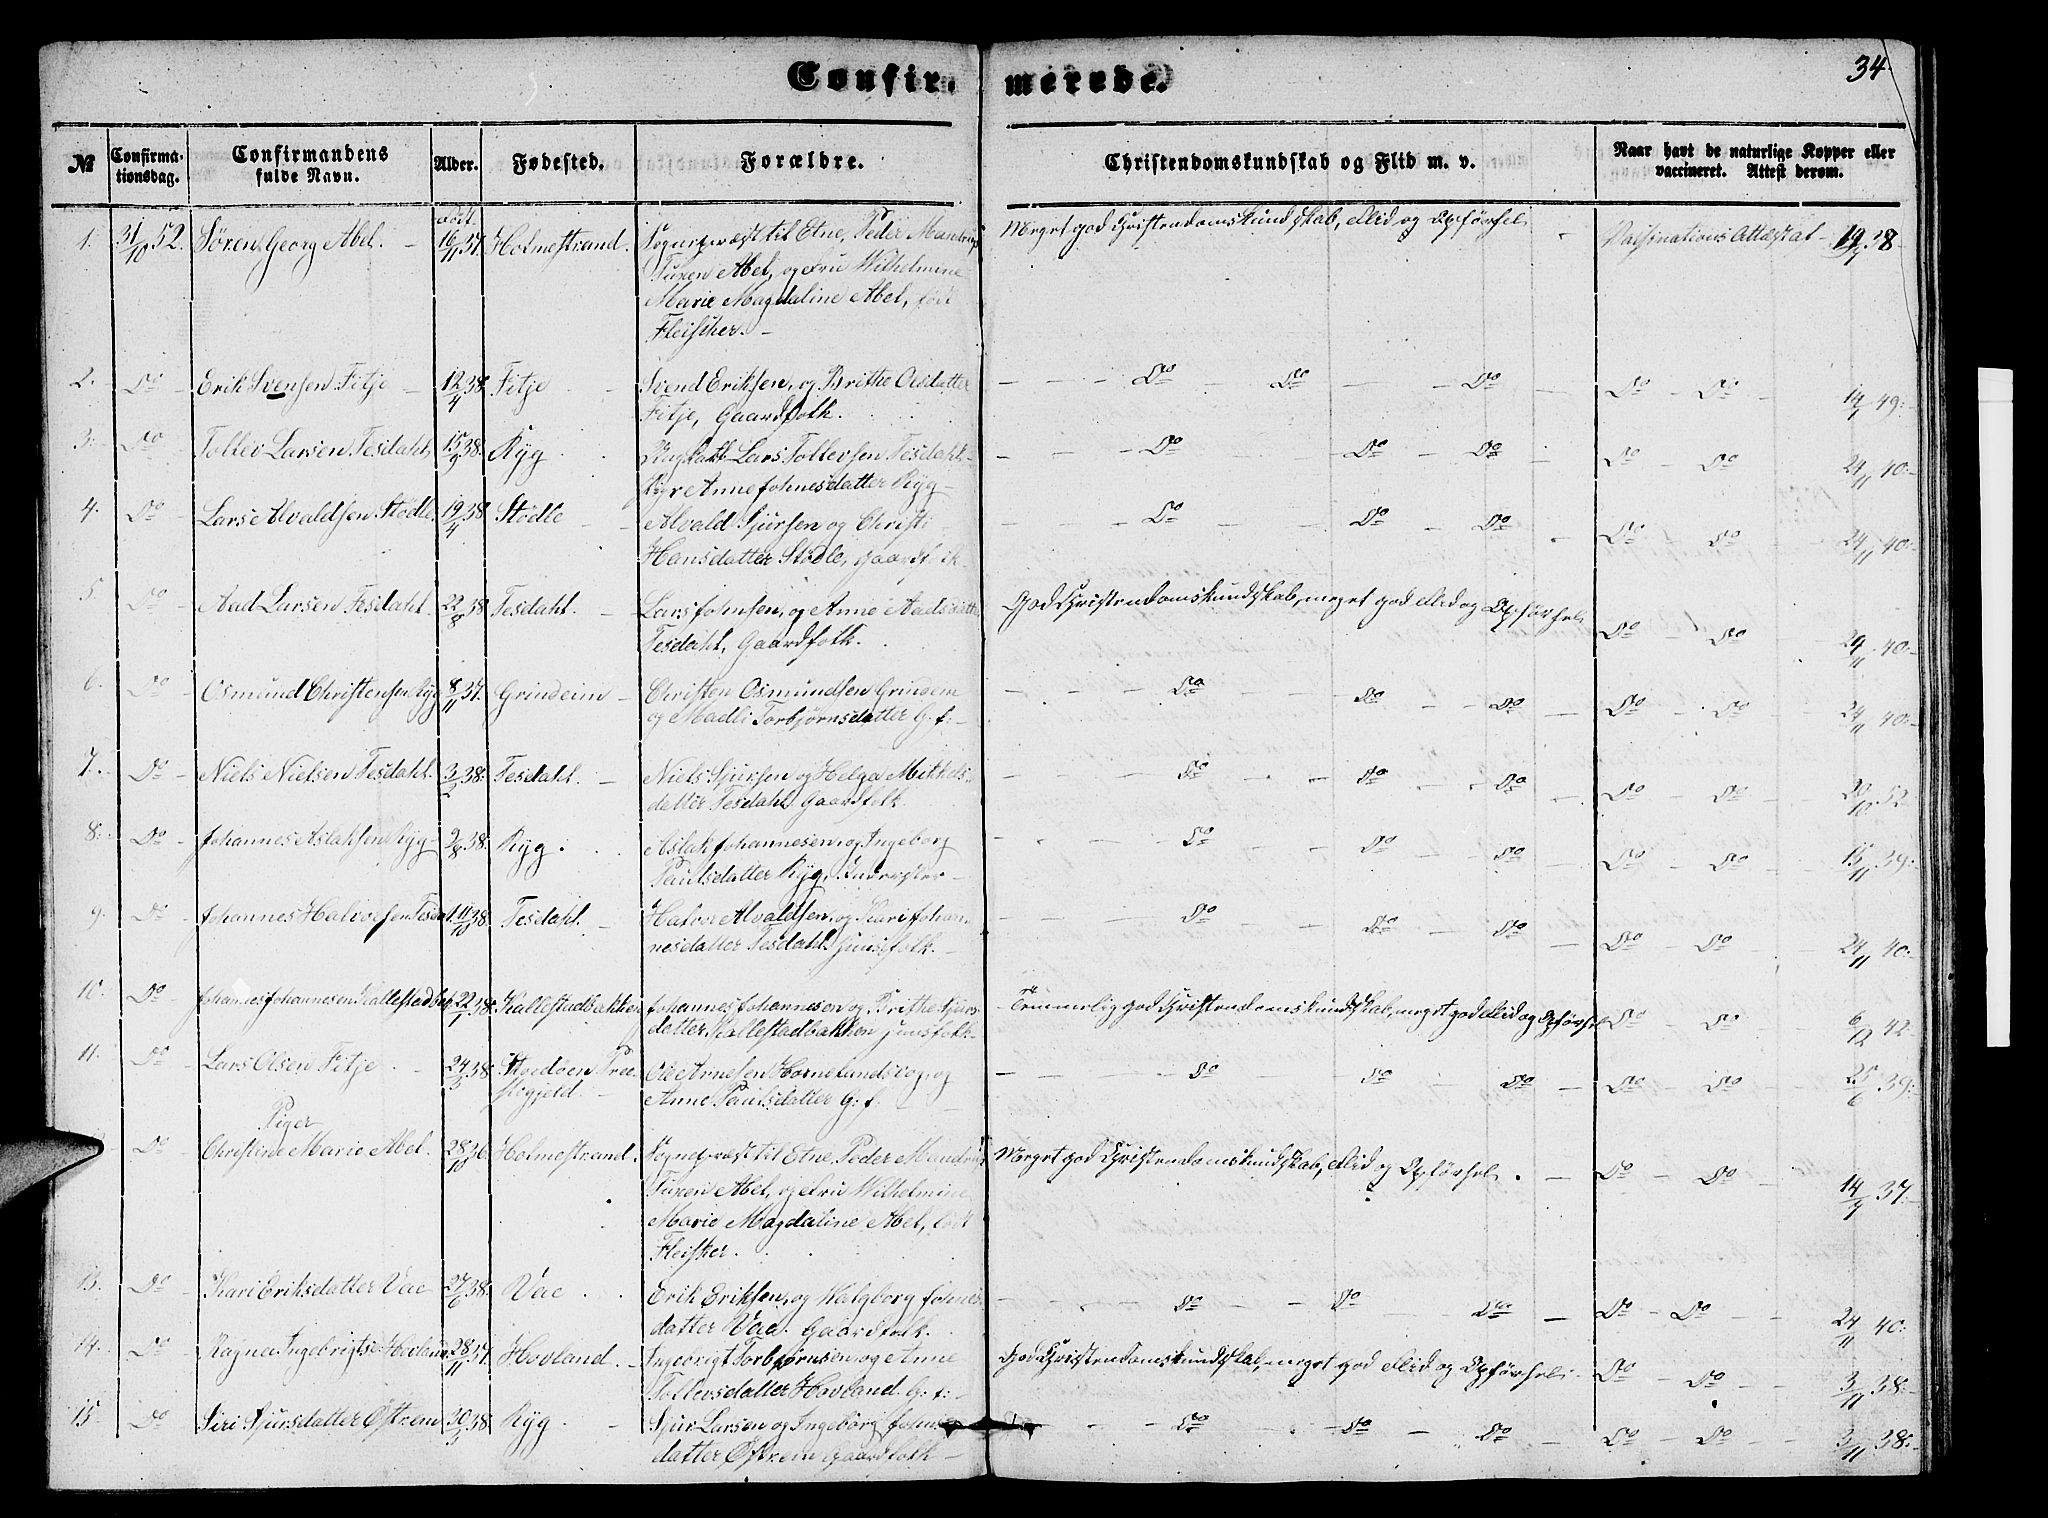 Confir- merede.
34
№ Confirma-tionsdag. Confirmandens fulde Navn. Alder. Fødested. Forældre. Christendomskundskab og Flid m. v. Naar havt de naturlige Kopper eller vaccineret. Attest derom.
1. 31/10 52. Søren Georg Abel. – født 16/11 37. Holmestrand. Sognepræst til Etne, Peder Mandrup Meget god Christendomskundskab, Flid og Opførsel – Vaksinations Attestat – 19/7 38
Tuxen Abel, og Fru Wilhelmine
Marie Magdaline Abel, født
Fleischer. –
2. Do – Erik Svensen Fitje – 12/4 38. Fitje – Svend Eriksen, og Brithe Olsdatter – – – Do – Do – – Do – Do – Do – 14/7 49.
Fitje, Gaardfolk.
3. Do Tollev Larsen Tesdahl, 15/9 38. Ryg Ungkarl Lars Tollevsen Tesdahl – – – Do – – Do – Do – Do – Do 24/11 40.
Pige Anne Johnesdatter Ryg –
4. Do – Lars Alvaldsen Stødle. 19/4 38 Stødle – Alvald Sjursen og Christi – – – Do – – Do – Do – Do – Do – 24/11 40.
Hansdatter Stødle, Gaardfolk.
5. Do Aad Larsen Tesdahl. 22/8 38. Tesdahl. – Lars Johnsen, og Anne Aadsdatter God Christendomskundskab, meget god Flid og Opførsel Do – Do – 24/11 40.
Tesdahl, Gaardfolk.
6. Do Osmund Christensen Ryg 8/11 37. Grindeim – Christen Osmundsen Grindem – – – Do – Do – – Do – Do – Do – 24/11 40.
og Madli Torbjørnsdatter G: f: –
7. Do – Niels Nielsen Tesdahl. 3/2 38. Tesdahl. – Niels Sjursen og Helga Mikkels- – – – Do – – Do – Do – Do – Do – 20/10 52
datter Tesdahl. Gaardfolk.
8. Do – Johannes Aslaksen Ryg – 9/8 38. Ryg. Aslak Johannesen og Ingeborg – – – Do – Do – – Do – Do – Do – 15/11 39.
Paulsdatter Ryg, Inderster –
9. Do – Johannes Halvorsen Tesdal. 11/10 38. Tesdahl. – Halvor Alvaldsen, og Kari Johan- – – – Do – – Do – Do – Do – Do 24/11 40.
nesdatter Tesdahl. Huusfolk.
10. Do – Johannes Johannesen Kallestadbak. 22/1 38. Kallestadbakken Johannes Johannesen og Brithe Sjurs- Temmelig god Christendomskundskab, meget god Flid og Opførsel Do – Do – 6/12 42.
datter Kallestadbakken Huusfolk.
11. Do Lars Olsen Fitje. 24/3 38. Stordøen Præ- Ole Arnesen Hornelandsvog, og – – – Do – Do – – Do – Do – Do – 25/6 39.
stegjeld. – Anne Paulsdatter G: f: –
Piger
Do Christine Marie Abel. 28/10 36 Holmestrand. Sogneprest til Etne Peder Mandrup Meget god Christendomskundskab, Flid og Opførsel. – Do – Do – 14/7 37.
Tuxen Abel, og Fru Wilhelmine
Marie Magdaline Abel, født
Fleischer.
13. Do – Kari Eriksdatter Vae 27/6 38. Vae Erik Eriksen, og Valgborg Johnes- – – – Do – – Do – Do – Do – Do – 24/11 40.
datter Vae. Gaardfolk.
14. Do Ragna Ingebrigtsd. Hovland 28/11 37. Hovland. – Ingebrigt Torbjørnsen og Anne God Christendomskundskab, meget god Flid og Opførsel. Do – Do – 3/11 38.
Tollevsdatter Hovland. G: f: –
15. Do – Siri Sjursdatter Østrem 30/3 38. Ryg. – Sjur Larsen og Ingeborg Johns- Do – – Do – Do – Do – Do – Do – 3/11 38.
datter Østrem Gaardfolk –